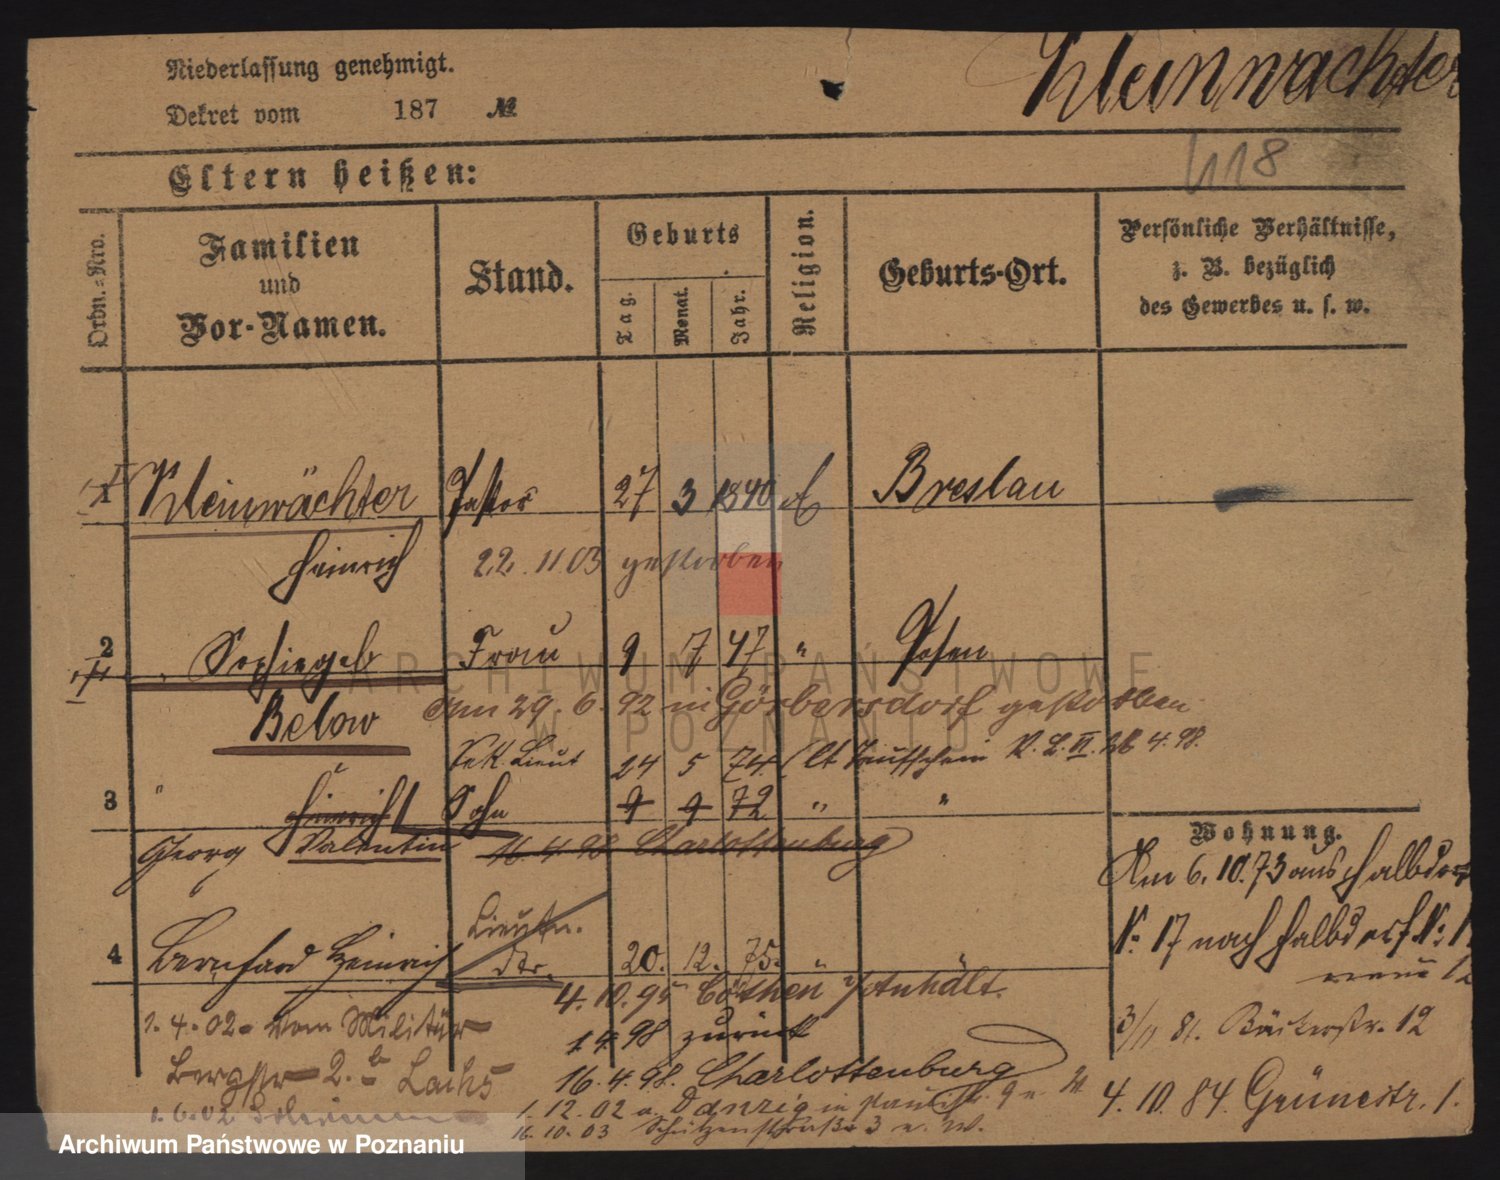 Niederlassung genehmigt.
Dekret vom 187 №
Kleinwächter
418
Eltern heißen:
Ordn.-Nro.
Familien und Vor-Namen.
Stand.
Geburts
Tag. Monat. Jahr.
Religion.
Geburts-Ort.
Persönliche Verhältnisse, z. B. bezüglich des Gewerbes u. s. w.
1 Kleinwächter Pastor 27 3 1840 Breslau
Heinrich 22. 11 03 gestorben
2 Frau 9 7 47 " Posen
Below Am 29. 6. 92 in Görbersdorf gestorben
Sek. Lieut 24 5 74 4. 98.
3 " Heinrich Sohn 9 9 72 " "
Georg Valentin 16. 4. 98 Charlottenburg
Wohnung.
Am 6. 10. 73 aus Halbdorf
Nr. 17 nach Halbdorf Nr.
4 Bernhard Heinrich 20. 12. 75.
4. 10. 95 Cöthen Anhalt.
1. 4. 02. vom Militär
1 4 98 zurück
3/11 81. Bäckerstr. 12
Bergstr 2. b Lachs
16. 4. 98. Charlottenburg
4. 10. 84. Grünestr. 1.
1. 6. 02
1. 12. 02 a. Danzig in
16. 10. 03 Schützenstraße 3
ARCHIWUM PAŃSTWOWE
W POZNANIU
Archiwum Państwowe w Poznaniu